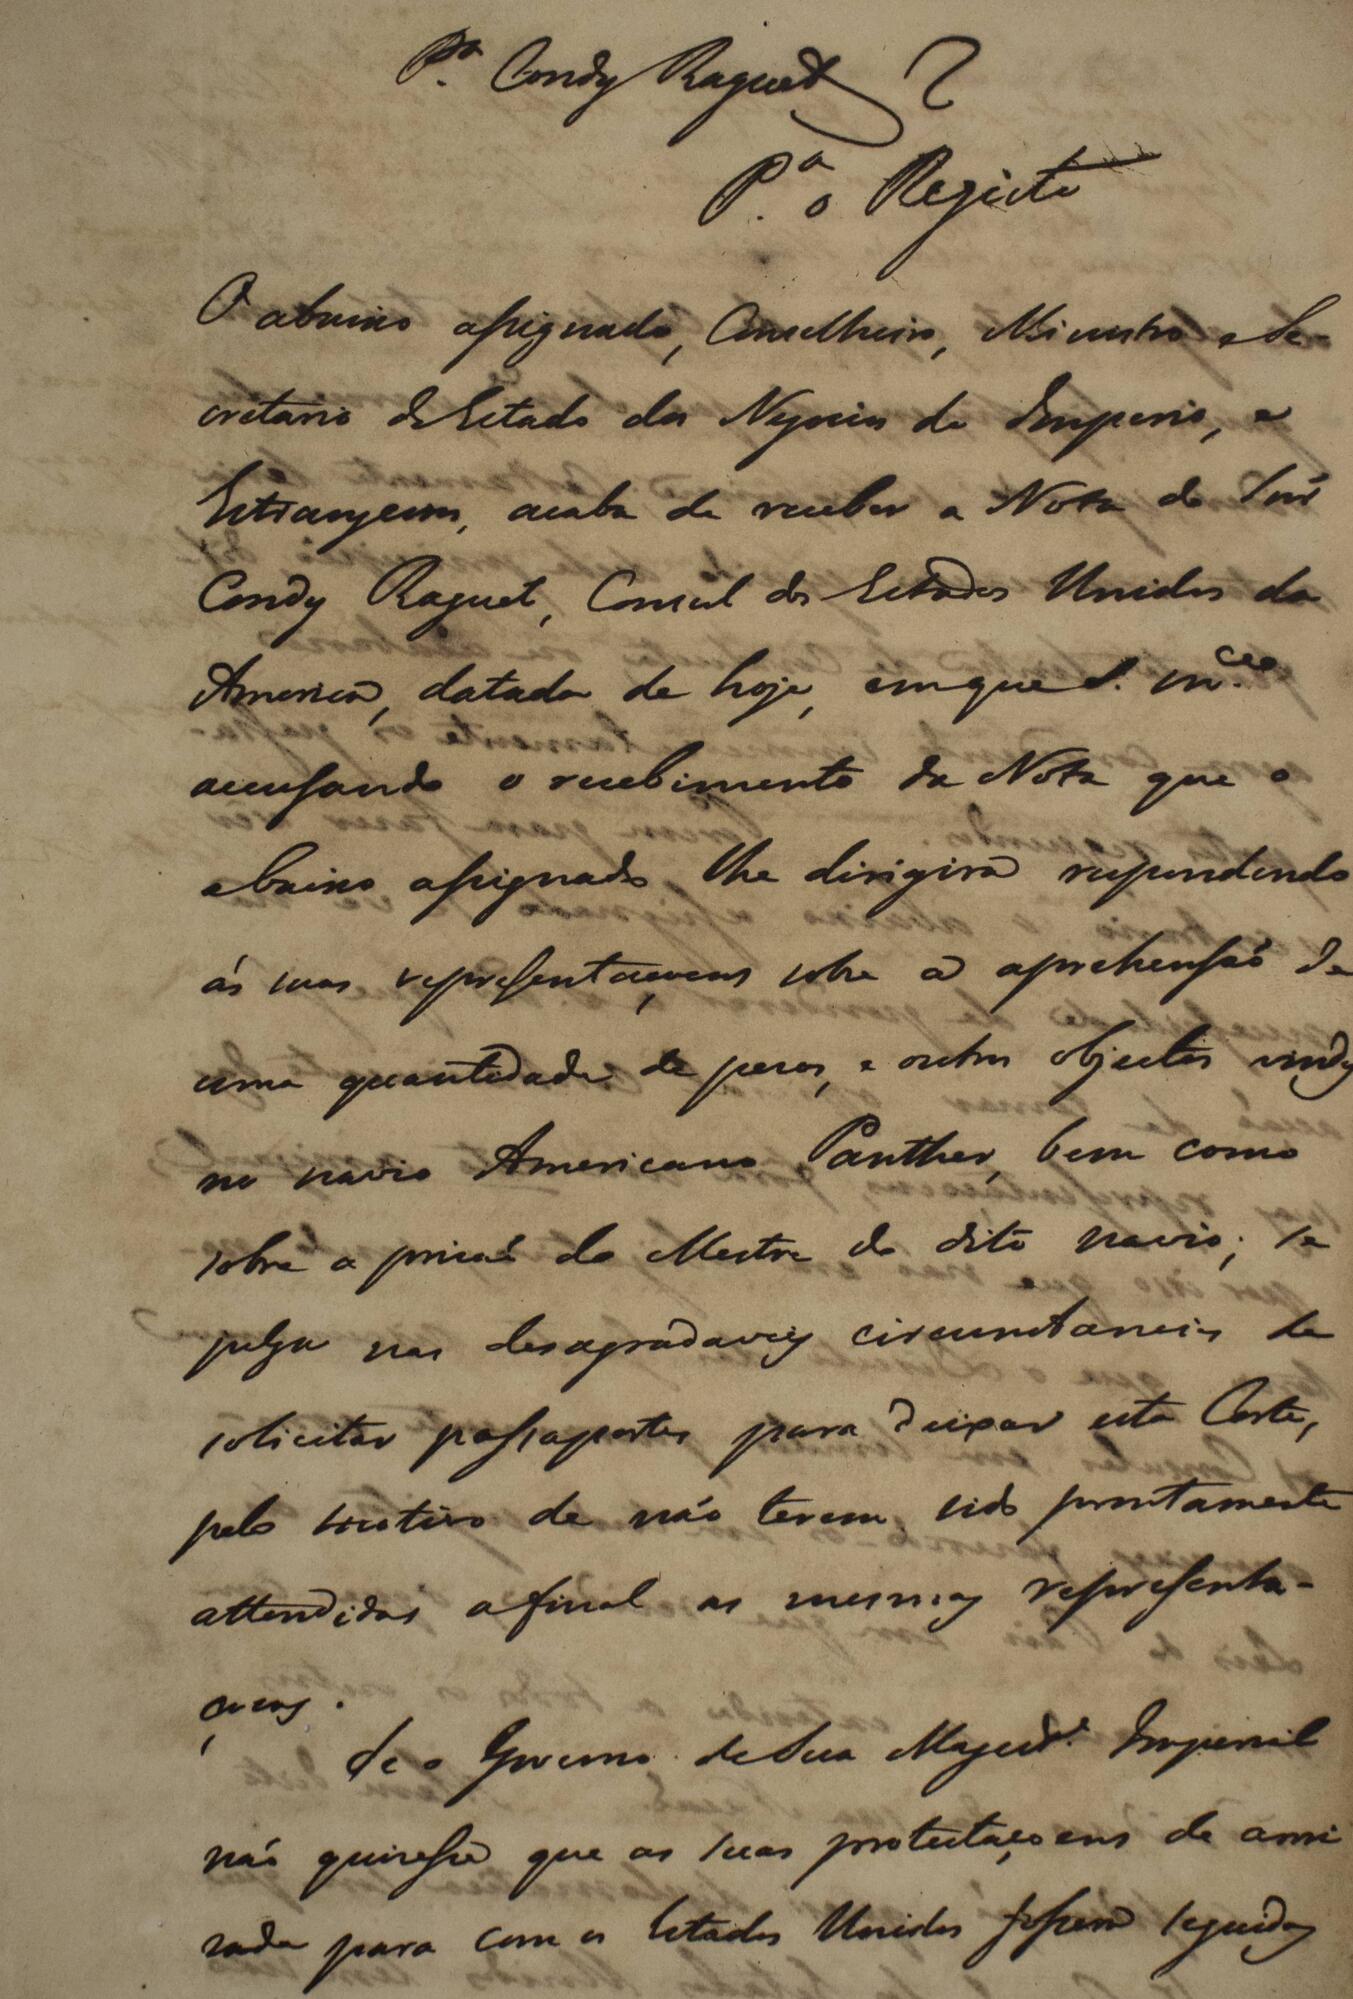 P.ª Condy Raguet
P.ª o Registo
O abaixo assignado, Conselheiro, Ministro e Se-
cretario d'Estado dos Negocios do Imperio, e
Estrangeiros, acaba de receber a Nota do Snr
Condy Raguet, Consul dos Estados Unidos da
America, datada de hoje, em que S. m.ce
accusando o recebimento da Nota que o
abaixo assignado lhe dirigira respondendo
ás suas representaçoens sobre a aprehensaõ de
uma quantidade de pesos, e outros objectos vindos
no navio Americano Panther, bem como
sobre a prisaõ do Mestre do dito navio; se
julga nas desagradaveis circunstancias de
solicitar passaportes para deixar esta Corte,
pelo motivo de não terem sido prontamente
attendidas afinal as mesmas representa-
çoens.
Se o Governo de Sua Magest.e Imperial
não quizesse que as suas protestaçoens de ami
zade para com os Estados Unidos fossem seguidas